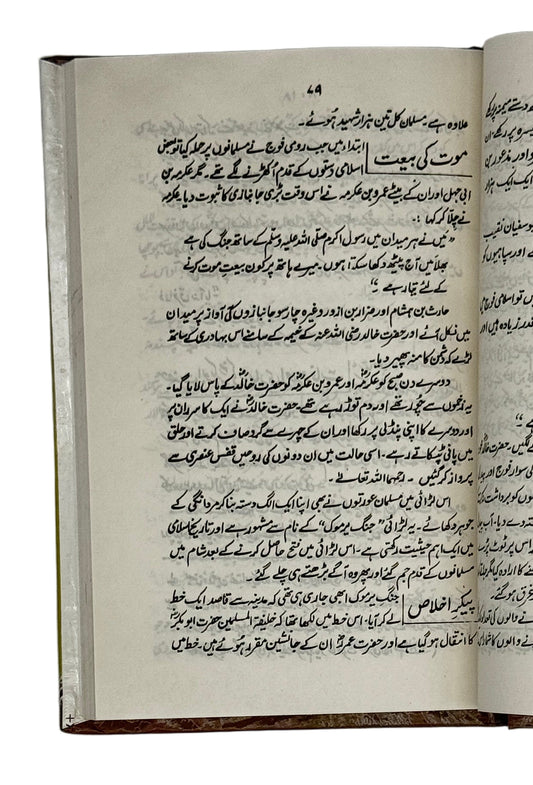 ۷۹
علاوہ ہے۔ مسلمان کل تین ہزار شہید ہُوئے۔
موت کی بیعت
ابتداء میں جب رومی فوج نے مسلمانوں پر حملہ کیا تو بعض
اسلامی دستوں کے قدم اُکھڑنے لگے تھے۔ مگر عکرمہ بن
ابی جہل اور ان کے بیٹے عمرو بن عکرمہ نے اس وقت بڑی جانبازی کا ثبوت دیا۔ عکرمہ
نے چلّا کر کہا :۔
"میں نے ہر میدان میں رسول اکرم صلی اللہ علیہ وسلم کے ساتھ جنگ کی ہے
بھلا میں آج پیٹھ دکھا سکتا ہوں۔ میرے ہاتھ پر کون بیعتِ موت کرنے
کے لئے تیار ہے۔"
حارث بن ہشام اور ضرار بن ازور وغیرہ چار سو جانبازوں کی آواز پر میدان
میں نکل آئے اور حضرت خالد رضی اللہ عنہ کے خیمہ کے سامنے اس بہادری کے ساتھ
لڑے کہ دشمن کا منہ پھیر دیا۔
دوسرے دن صبح کو عکرمہؓ اور عمرو بن عکرمہؓ کو حضرت خالدؓ کے پاس لایا گیا۔
یہ زخموں سے چُور تھے اور دم توڑ رہے تھے۔ حضرت خالدؓ نے ایک کا سر ران پر
اور دوسرے کا اپنی پنڈلی پر رکھا اور ان کے چہرے سے گرد صاف کرتے اور حلق
میں پانی ٹپکاتے رہے۔ اسی حالت میں ان دونوں کی روحیں قفس عنصری سے
پرواز کر گئیں۔ رحمہما اللہ تعالےٰ۔
اس لڑائی میں مسلمان عورتوں نے بھی اپنا ایک الگ دستہ بنا کر مردانگی کے
جوہر دکھائے۔ یہ لڑائی "جنگ یرموک" کے نام سے مشہور ہے اور تاریخ اسلامی
میں ایک اہم حیثیت رکھتی ہے۔ اس لڑائی میں فتح حاصل کرنے کے بعد شام میں
مسلمانوں کے قدم جم گئے اور پھر وہ آگے بڑھتے ہی چلے گئے۔
پیکرِ اخلاص
جنگ یرموک ابھی جاری ہی تھی کہ مدینہ سے قاصد ایک خط
لے کر آیا۔ اس خط میں لکھا تھا کہ خلیفۃ المسلمین حضرت ابوبکرؓ
کا انتقال ہو گیا ہے اور حضرت عمرؓ ان کے جانشین مقرر ہُوئے ہیں۔ خط میں